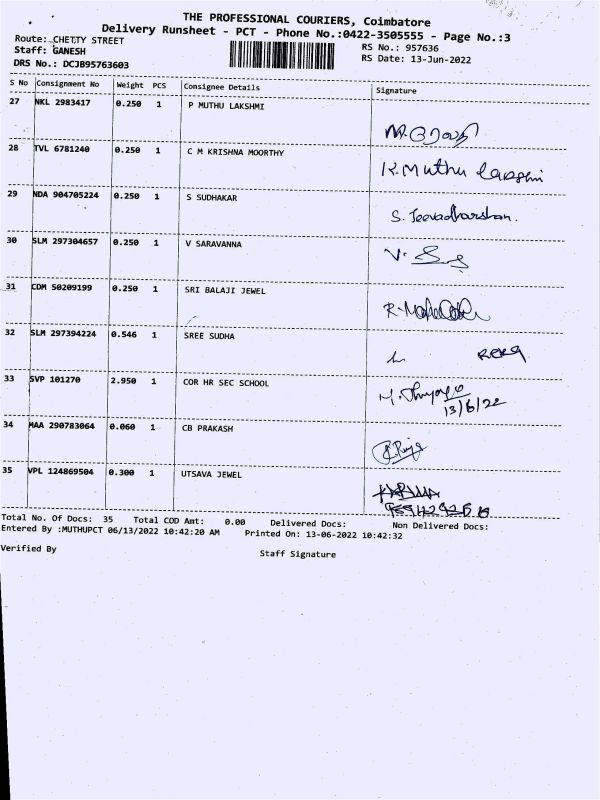 THE PROFESSIONAL COURIERS, Coimbatore
Delivery Runsheet - PCT - Phone No.:0422-3505555 - Page No.:3
Route: CHETTY STREET
Staff: GANESH
DRS No.: DCJB95763603
RS No.: 957636
RS Date: 13-Jun-2022
S No Consignment No Weight PCS Consignee Details Signature
27 NKL 2983417 0.250 1 P MUTHU LAKSHMI
28 TVL 6781240 0.250 1 C M KRISHNA MOORTHY K.Muthu
29 NDA 904705224 0.250 1 S SUDHAKAR S. Jeevadharshan.
30 SLM 297304657 0.250 1 V SARAVANNA
31 CDM 50209199 0.250 1 SRI BALAJI JEWEL
32 SLM 297394224 0.546 1 SREE SUDHA
33 SVP 101270 2.950 1 COR HR SEC SCHOOL
13/6/22
34 MAA 290783064 0.060 1 CB PRAKASH
35 VPL 124869504 0.300 1 UTSAVA JEWEL
Total No. Of Docs: 35 Total COD Amt: 0.00 Delivered Docs: Non Delivered Docs:
Entered By :MUTHUPCT 06/13/2022 10:42:20 AM Printed On: 13-06-2022 10:42:32
Verified By Staff Signature